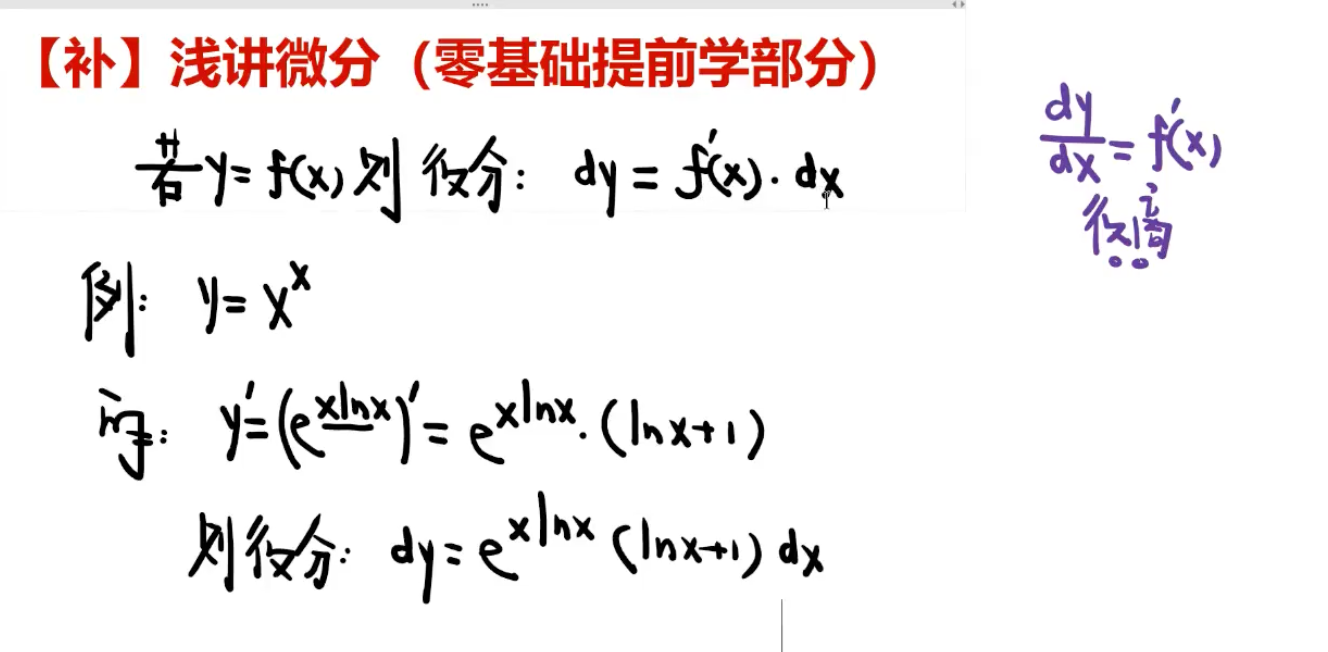 【补】浅讲微分（零基础提前学部分）
若y=f(x)则 微分: dy=f'(x)·dx
dy/dx=f'(x)
微商
例: y=x^x
y'=(e^{xlnx})'=e^{xlnx}·(lnx+1)
则微分: dy=e^{xlnx}(lnx+1)dx